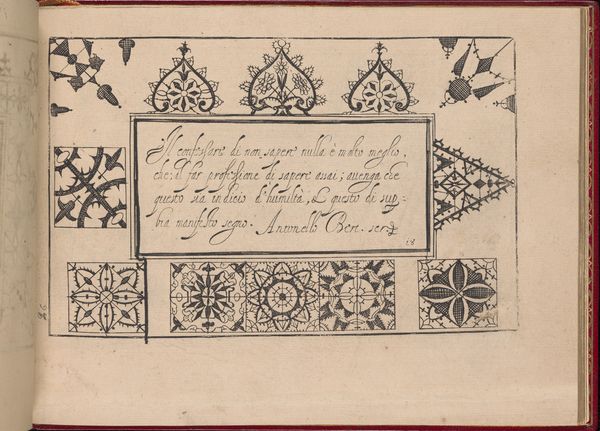 Il confessare di non sapere nulla è molto meglio,
che, il far professione di sapere assai; auenga che
questo sia indicio d'humiltà, & questo di sup,,
bia manifesto segno. Antonello Bert. ser.
18
98